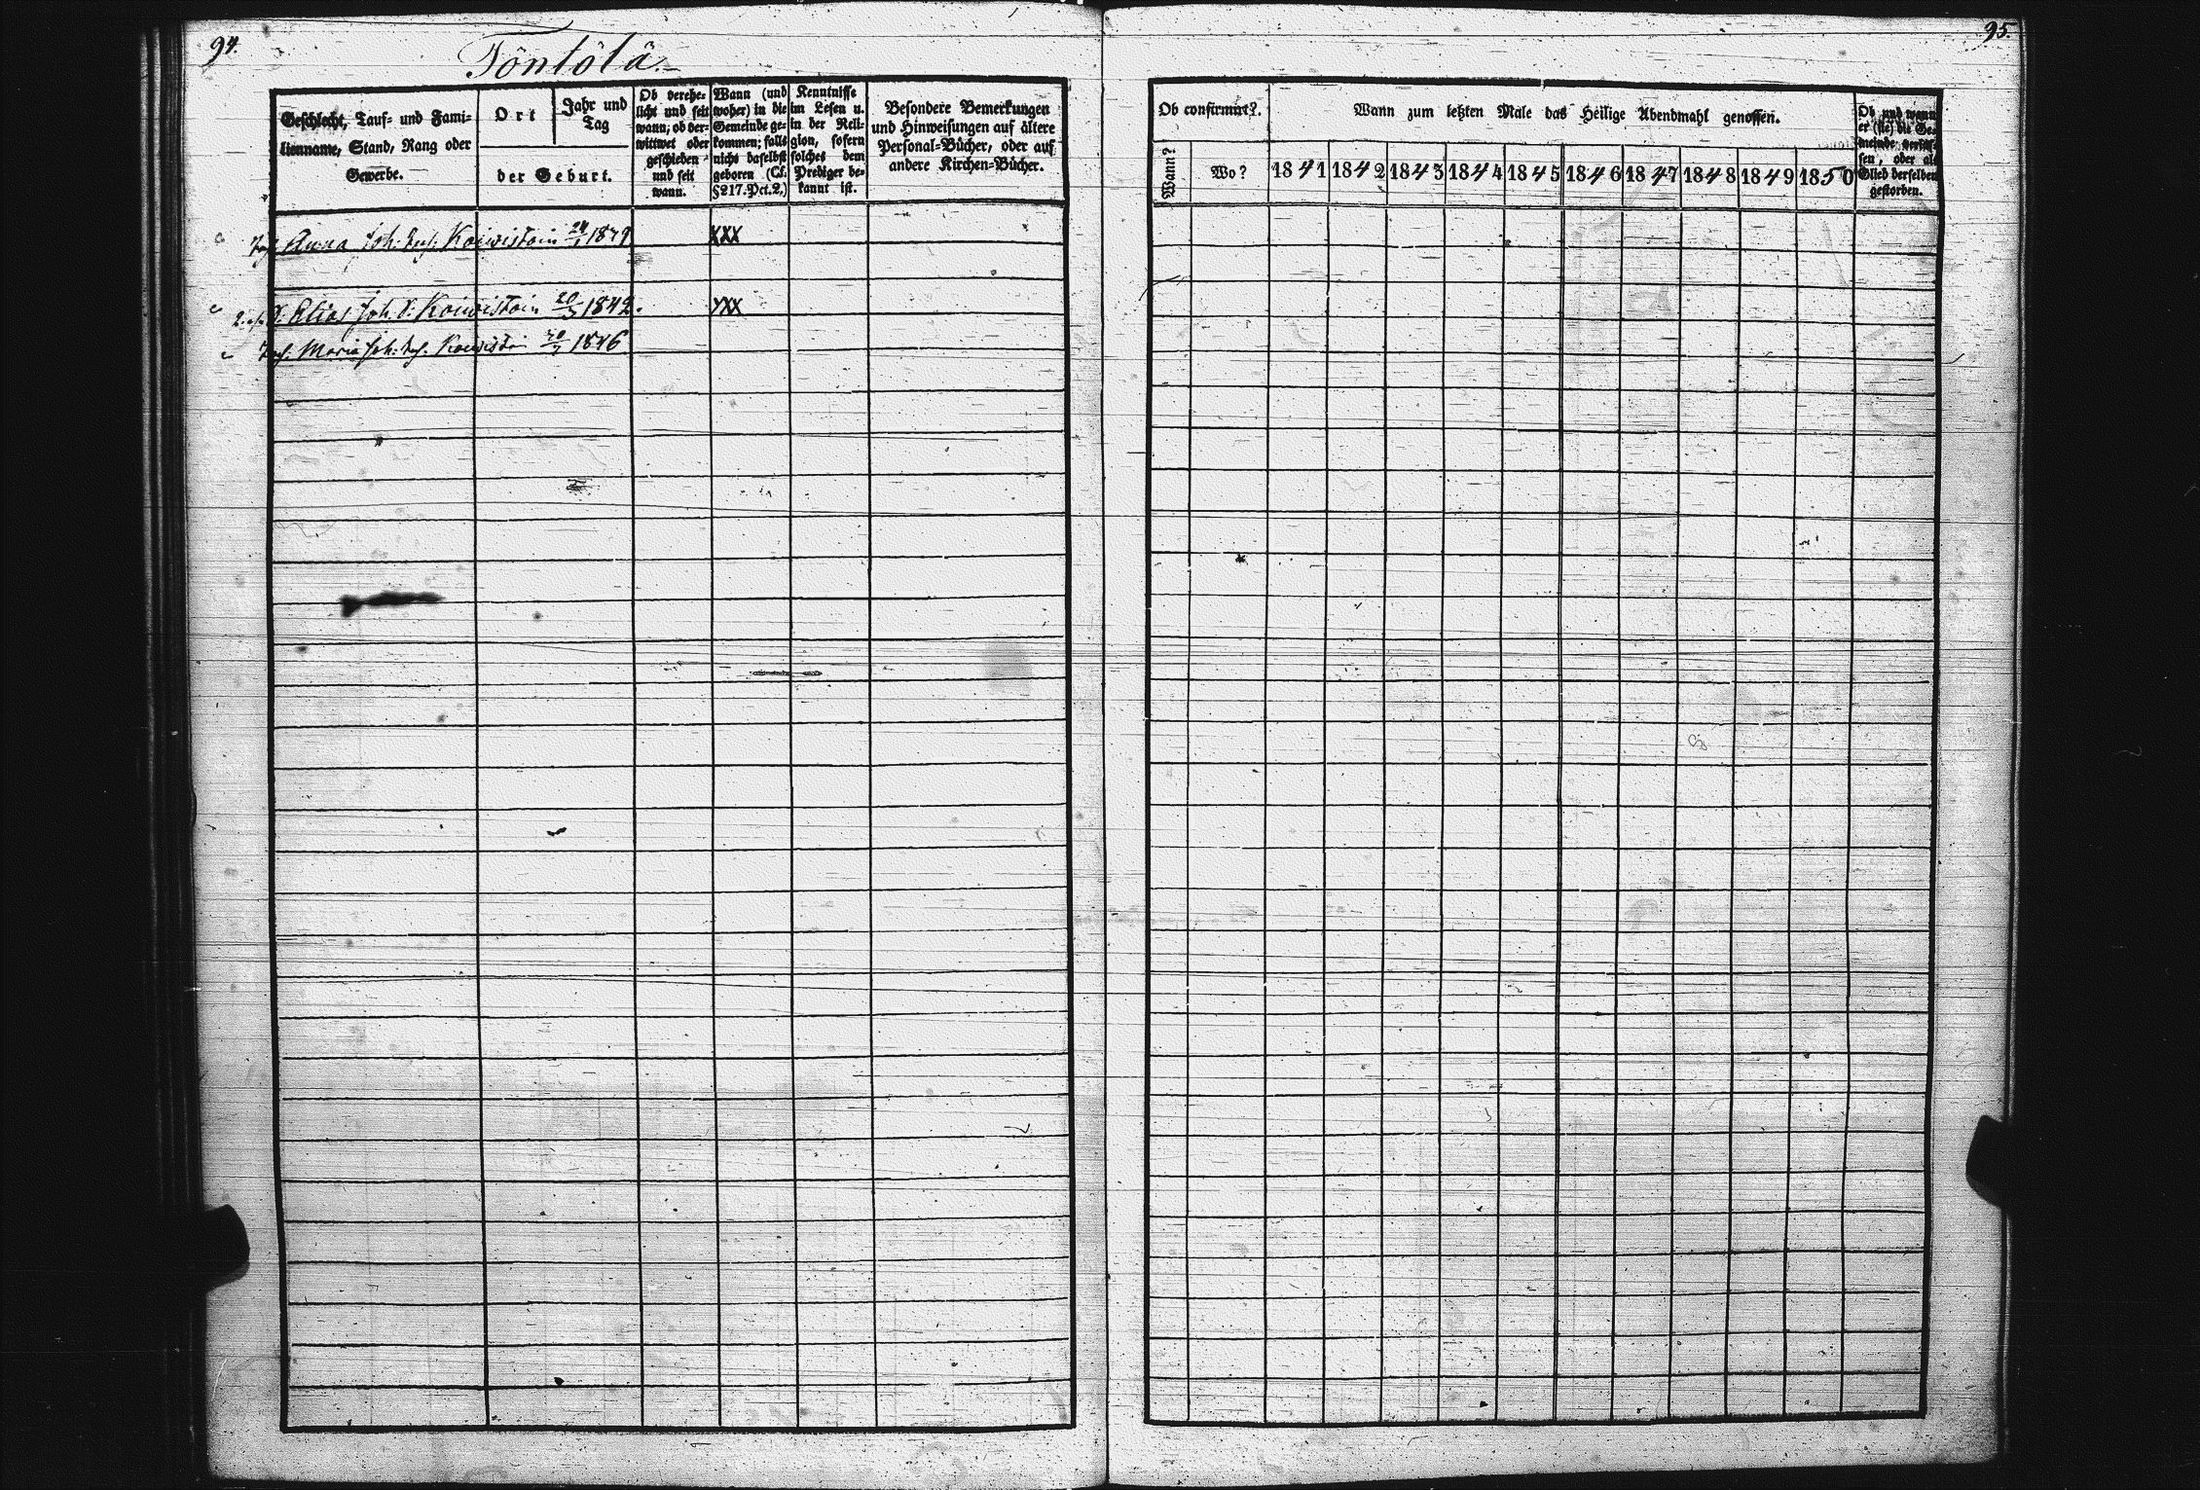 94.
Töntölä.
Geschlecht, Tauf- und Fami-
lienname, Stand, Rang oder
Gewerbe.
Ort
Jahr und
Tag
der Geburt.
Ob verehe-
licht und seit
wann; ob ver-
wittwet oder
geschieden
und seit
wann.
Wann (und
woher) in die
Gemeinde ge-
kommen; falls
nicht daselbst
geboren (Cf.
§217. Pct. 2.)
Kenntnisse
im Lesen u.
in der Reli-
gion, sofern
solches dem
Prediger be-
kannt ist.
Besondere Bemerkungen
und Hinweisungen auf ältere
Personal-Bücher, oder auf
andere Kirchen-Bücher.
Anna Joh. Koiwistoin XXX
Elias Joh. S. Koiwistoin 20/5 1842. XXX
Maria Joh. 1846
95.
Ob confirmirt?
Wann?
Wo?
Wann zum letzten Male das Heilige Abendmahl genossen.
1841 1842 1843 1844 1845 1846 1847 1848 1849 1850
Ob und wann
er (sie) die Ge-
meinde verlas-
sen, oder als
Glied derselben
gestorben.